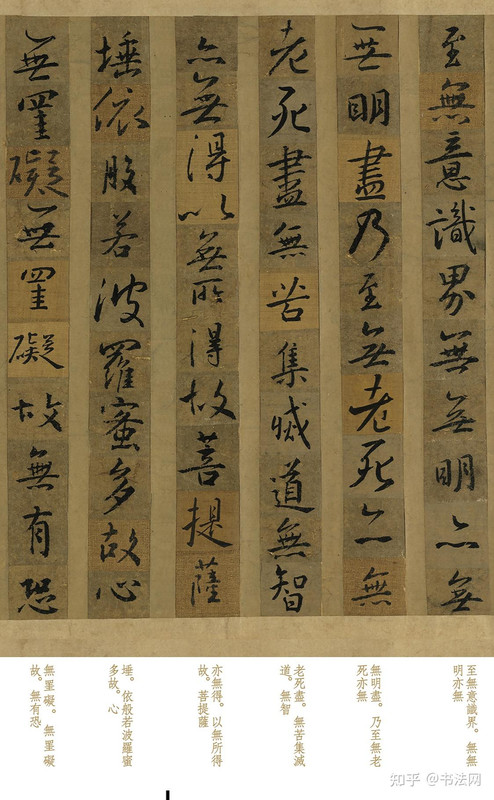 至無意識界無無明亦無
無明盡乃至無老死亦無
老死盡無苦集滅道無智
亦無得以無所得故菩提薩
埵依般若波羅蜜多故心
無罣礙無罣礙故無有恐
至無意識界。無無
明亦無
無明盡。乃至無老
死亦無
老死盡。無苦集滅
道。無智
亦無得。以無所得
故。菩提薩
埵。依般若波羅蜜
多故。心
無罣礙。無罣礙
故。無有恐
知乎 @书法网